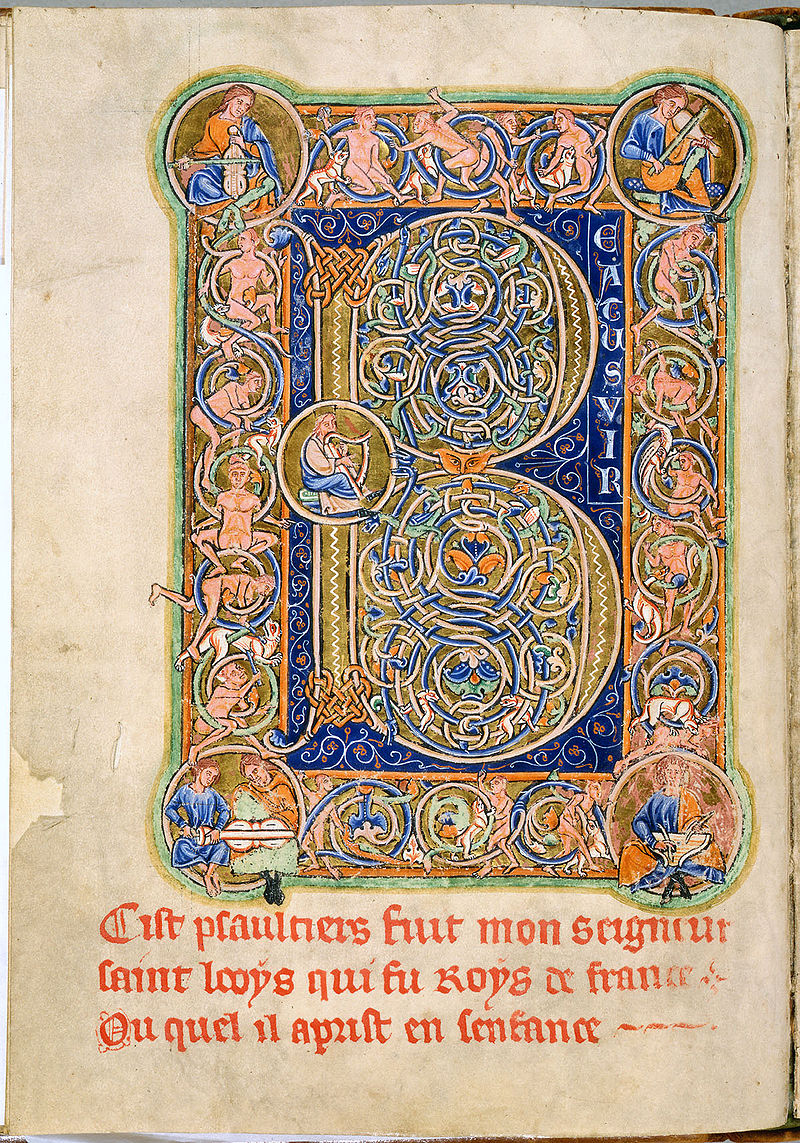 BEATUS
VIR
Cist psaultiers fuit mon seigneur
saint looys qui fu Roys de france
Ou quel il aprist en senfance